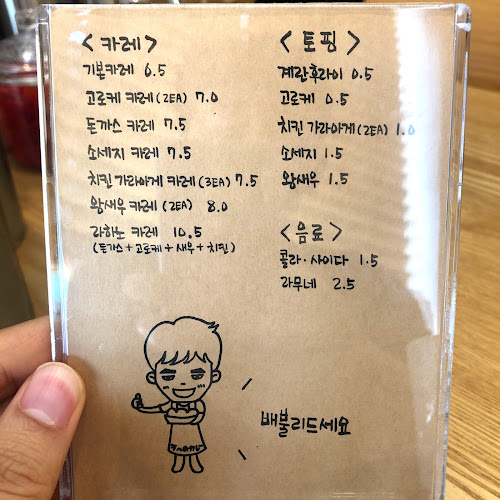 <카레>
기본카레 6.5
고로케 카레 (2EA) 7.0
돈까스 카레 7.5
소세지 카레 7.5
치킨 가라아게 카레 (3EA) 7.5
왕새우 카레 (2EA) 8.0
라하노 카레 10.5
(돈까스+고로케+새우+치킨)
<토핑>
계란후라이 0.5
고로케 0.5
치킨 가라아게 (2EA) 1.0
소세지 1.5
왕새우 1.5
<음료>
콜라·사이다 1.5
라무네 2.5
배불리드세요